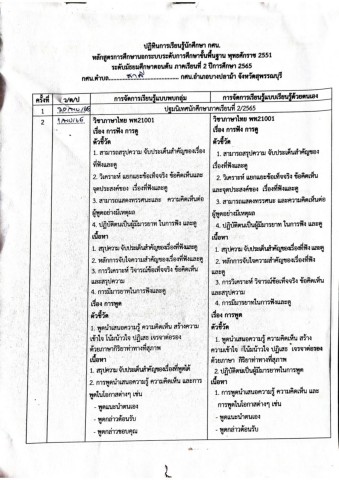 ปฏิทินการเรียนรู้นักศึกษา กศน.
หลักสูตรการศึกษานอกระบบระดับการศึกษาขั้นพื้นฐาน พุทธศักราช 2551
ระดับมัธยมศึกษาตอนต้น ภาคเรียนที่ 2 ปีการศึกษา 2565
กศน.ตำบล กศน.อำเภอบางปลาม้า จังหวัดสุพรรณบุรี
ครั้งที่ ว/ด/ป การจัดการเรียนรู้แบบพบกลุ่ม การจัดการเรียนรู้แบบเรียนรู้ด้วยตนเอง
1 ปฐมนิเทศนักศึกษาภาคเรียนที่ 2/2565
2 วิชาภาษาไทย พท21001
เรื่อง การฟัง การดู
ตัวชี้วัด
1. สามารถสรุปความ จับประเด็นสำคัญของเรื่อง
ที่ฟังและดู
2. วิเคราะห์ แยกแยะข้อเท็จจริง ข้อคิดเห็นและ
จุดประสงค์ของ เรื่องที่ฟังและดู
3. สามารถแสดงทรรศนะและ ความคิดเห็นต่อ
ผู้พูดอย่างมีเหตุผล
4. ปฏิบัติตนเป็นผู้มีมารยาท ในการฟัง และดู
เนื้อหา
1. สรุปความ จับประเด็นสำคัญของเรื่องที่ฟังและดู
2. หลักการจับใจความสำคัญของเรื่องที่ฟังและดู
3. การวิเคราะห์ วิจารณ์ข้อเท็จจริง ข้อคิดเห็น
และสรุปความ
4. การมีมารยาทในการฟังและดู
เรื่อง การพูด
ตัวชี้วัด
1. พูดนำเสนอความรู้ ความคิดเห็น สร้างความ
เข้าใจ โน้มน้าวใจ ปฏิเสธ เจรจาต่อรอง
ด้วยภาษากิริยาท่าทางที่สุภาพ
เนื้อหา
1. สรุปความ จับประเด็นสำคัญของเรื่องที่พูดได้
2. การพูดนำเสนอความรู้ ความคิดเห็น และการ
พูดในโอกาสต่างๆ เช่น
- พูดแนะนำตนเอง
- พูดกล่าวต้อนรับ
- พูดกล่าวขอบคุณ
วิชาภาษาไทย พท21001
เรื่อง การฟัง การดู
ตัวชี้วัด
1. สามารถสรุปความ จับประเด็นสำคัญของเรื่อง
ที่ฟังและดู
2. วิเคราะห์ แยกแยะข้อเท็จจริง ข้อคิดเห็น
และจุดประสงค์ของ เรื่องที่ฟังและดู
3. สามารถแสดงทรรศนะ และความคิดเห็นต่อ
ผู้พูดอย่างมีเหตุผล
เนื้อหา
1. สรุปความจับประเด็นสำคัญของเรื่องที่ฟังและดู
2. หลักการจับใจความสำคัญของเรื่องที่ฟัง
และดู
3. การวิเคราะห์ วิจารณ์ข้อเท็จจริง ข้อคิดเห็น
และสรุปความ
4. การมีมารยาทในการฟังและดู
เรื่อง การพูด
ตัวชี้วัด
1. พูดนำเสนอความรู้ ความคิดเห็น สร้าง
ความเข้าใจ โน้มน้าวใจ ปฏิเสธ เจรจาต่อรอง
ด้วยภาษา กิริยาท่าทางที่สุภาพ
2. ปฏิบัติตนเป็นผู้มีมารยาทในการพูด
เนื้อหา
1. การพูดนำเสนอความรู้ ความคิดเห็น และ
การพูดในโอกาสต่างๆ เช่น
- พูดแนะนำตนเอง
- พูดกล่าวต้อนรับ